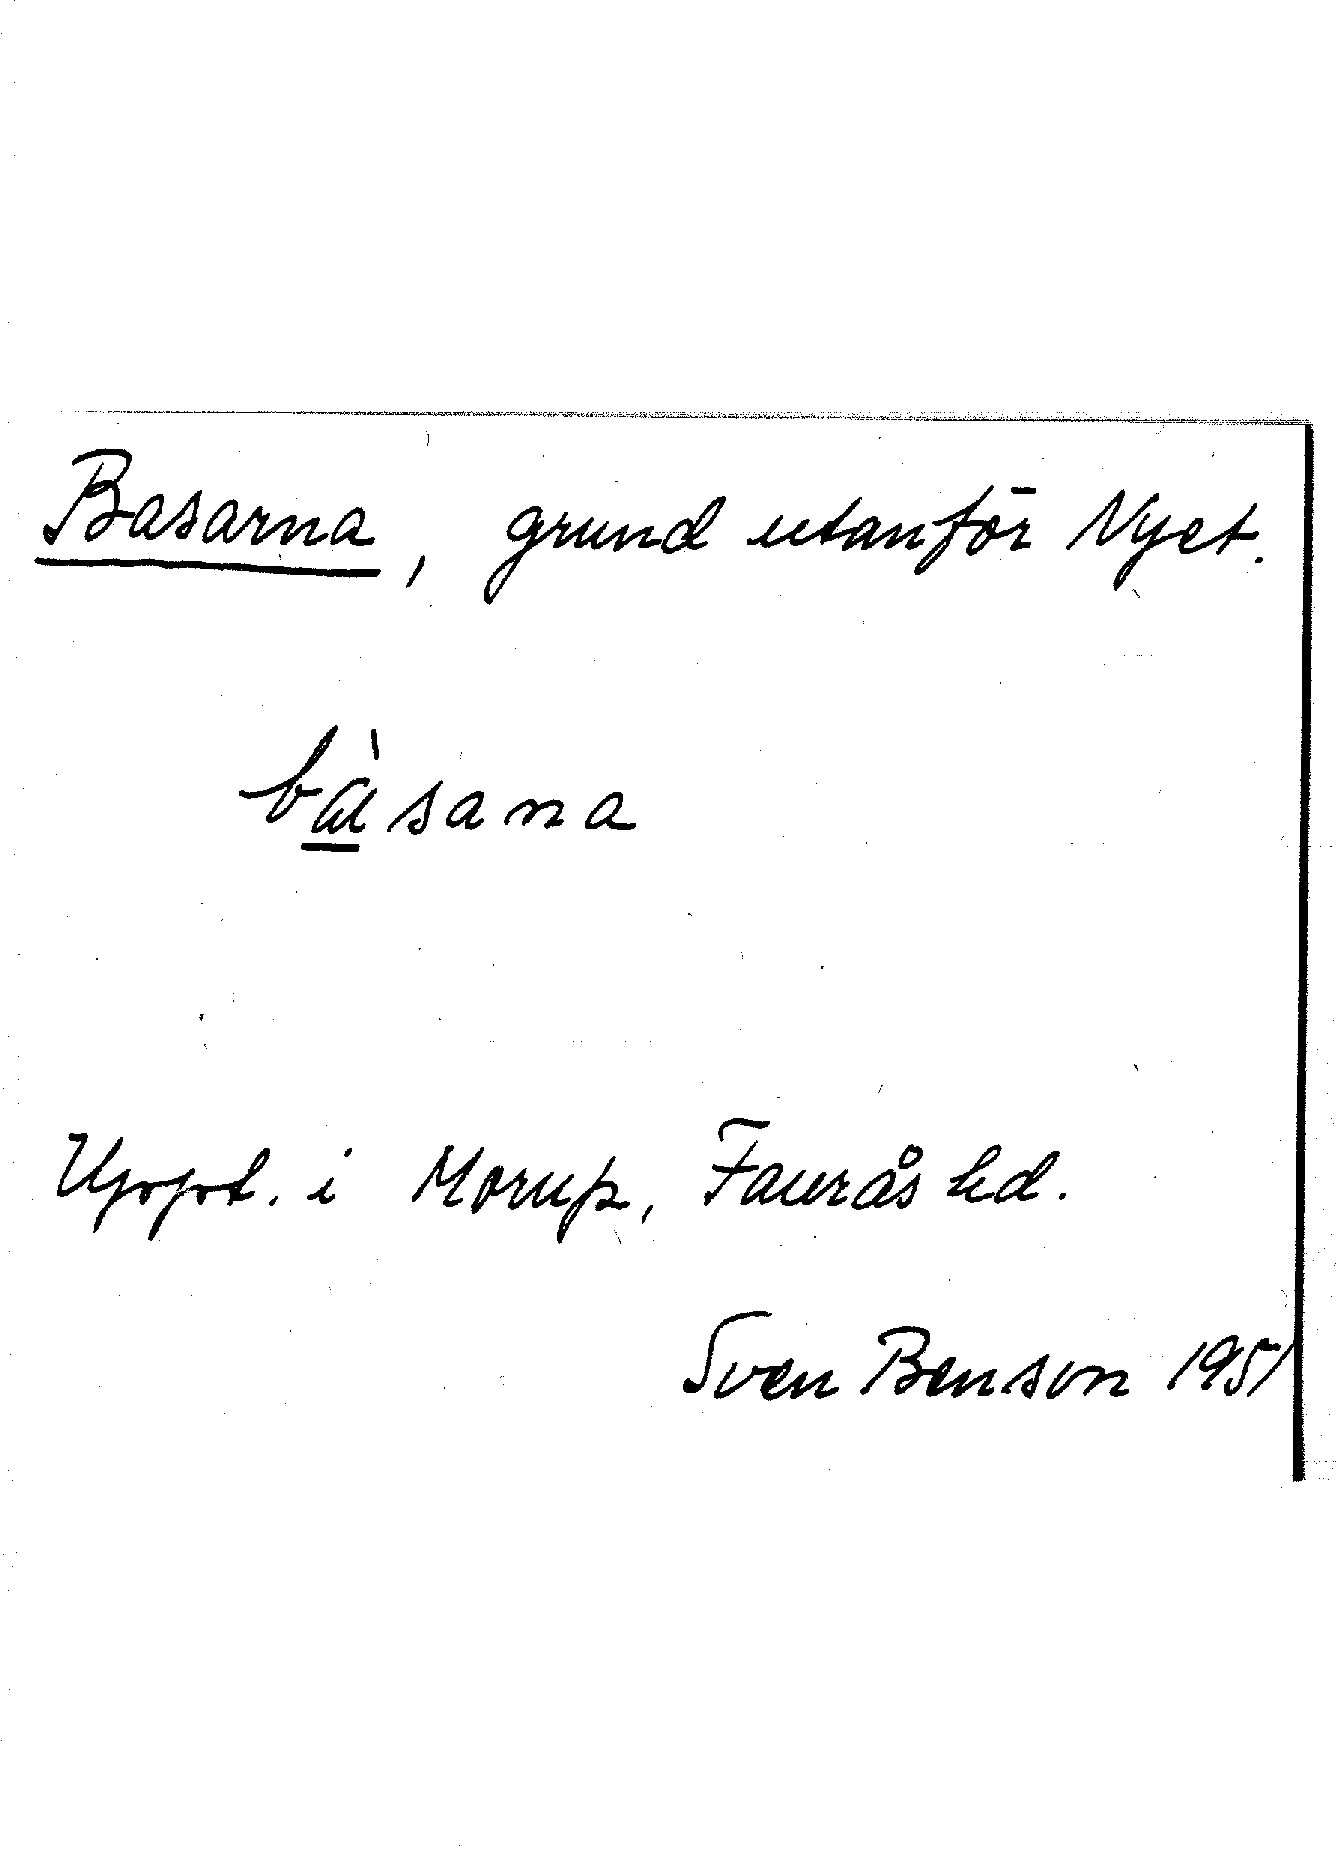 Basarna, grund utanför Nyet.
bàsana
Uppt. i Morup, Faurås hd.
Sven Benson 1951